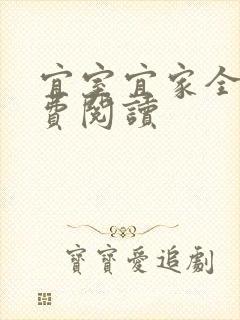 宜室宜家全
費閱讀
寶寶愛追劇